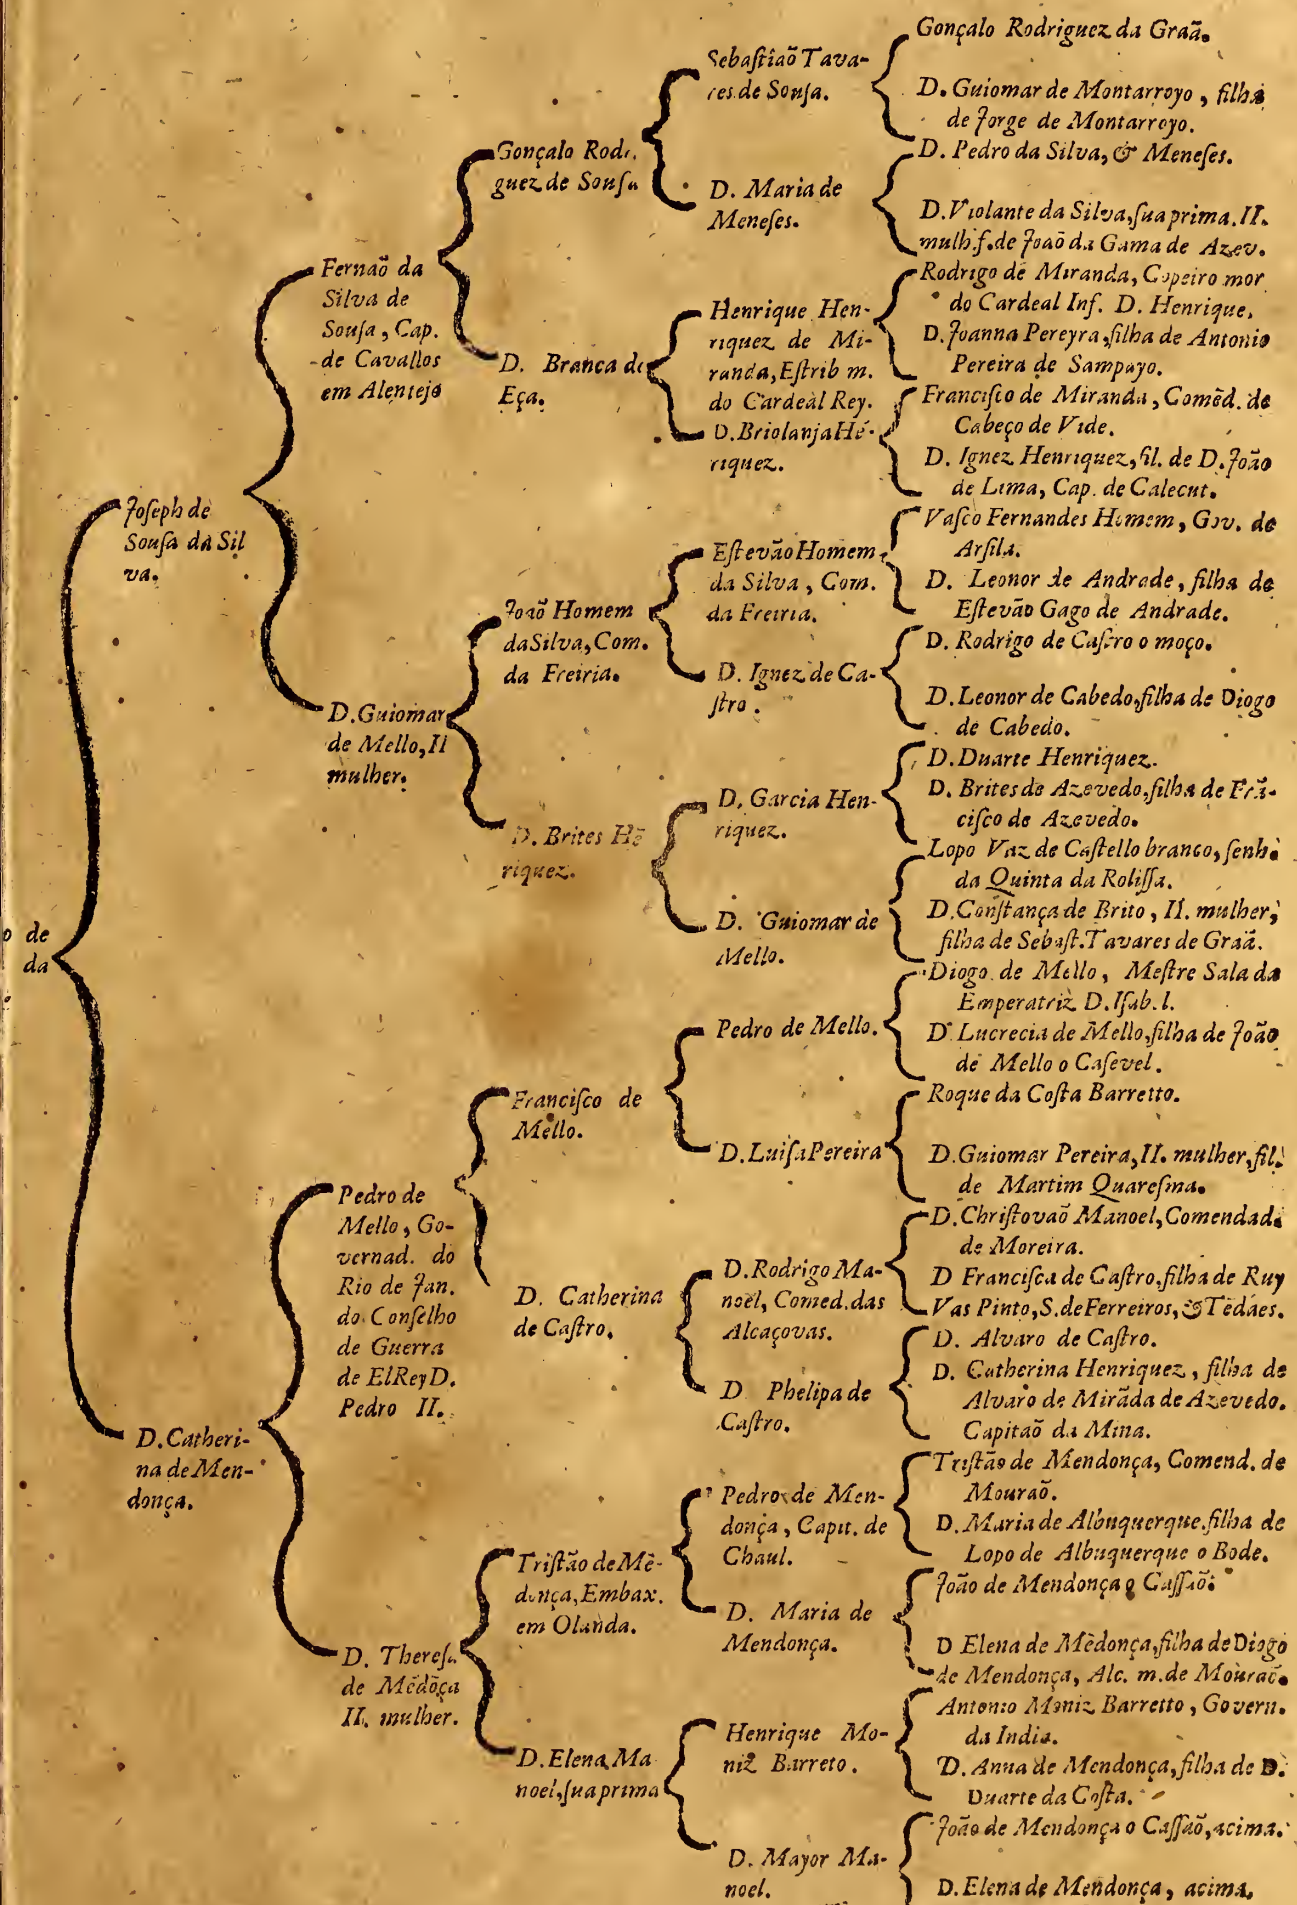 o de
da
Joſeph de
Souſa da Sil
va.
D. Catheri-
na de Men-
donça.
Fernaõ da
Silva de
Souſa, Cap.
de Cavallos
em Alentejo
D. Guiomar
de Mello, II
mulher.
Pedro de
Mello, Go-
vernad. do
Rio de Jan.
do Conſelho
de Guerra
de ElRey D.
Pedro II.
D. Thereſa
de Mẽdõça
II. mulher.
Gonçalo Rodri
guez de Souſa
D. Branca de
Eça.
Joaõ Homem
da Silva, Com.
da Freiria.
D. Brites Hẽ
riquez.
Franciſco de
Mello.
D. Catherina
de Caſtro.
Triſtão de Mẽ-
donça, Embax.
em Olanda.
D. Elena Ma
noel, ſua prima
Sebaſtiaõ Tava-
res de Souſa.
D. Maria de
Meneſes.
Henrique Hen-
riquez de Mi-
randa, Eſtrib m.
do Cardeal Rey.
D. Briolanja Hẽ-
riquez.
Eſtevão Homem
da Silva, Com.
da Freiria.
D. Ignez de Ca-
ſtro.
D. Garcia Hen-
riquez.
D. Guiomar de
Mello.
Pedro de Mello.
D. Luiſa Pereira
D. Rodrigo Ma-
noel, Comed. das
Alcaçovas.
D Phelipa de
Caſtro.
Pedro de Men-
donça, Capit. de
Chaul.
D. Maria de
Mendonça.
Henrique Mo-
niz Barreto.
D. Mayor Ma-
noel.
Gonçalo Rodriguez da Graã.
D. Guiomar de Montarroyo, filha
de Jorge de Montarroyo.
D. Pedro da Silva, & Meneſes.
D. Violante da Silva, ſua prima. II.
mulh. f. de Joaõ da Gama de Azev.
Rodrigo de Miranda, Copeiro mor
do Cardeal Inf. D. Henrique.
D. Joanna Pereyra, filha de Antonio
Pereira de Sampayo.
Franciſco de Miranda, Comẽd. de
Cabeço de Vide.
D. Ignez Henriquez, fil. de D. João
de Lima, Cap. de Calecut.
Vaſco Fernandes Homem, Gov. de
Arſila.
D. Leonor de Andrade, filha de
Eſtevão Gago de Andrade.
D. Rodrigo de Caſtro o moço.
D. Leonor de Cabedo, filha de Diogo
de Cabedo.
D. Duarte Henriquez.
D. Brites de Azevedo, filha de Frã-
ciſco de Azevedo.
Lopo Vaz de Caſtello branco, ſenh.
da Quinta da Roliſſa.
D. Conſtança de Brito, II. mulher,
filha de Sebaſt. Tavares de Graã.
Diogo de Mello, Meſtre Sala da
Emperatriz D. Iſab. l.
D. Lucrecia de Mello, filha de João
de Mello o Caſevel.
Roque da Coſta Barretto.
D. Guiomar Pereira, II. mulher, fil.
de Martim Quareſma.
D. Chriſtovaõ Manoel, Comendad.
de Moreira.
D Franciſca de Caſtro, filha de Ruy
Vas Pinto, S. de Ferreiros, & Tẽdaes.
D. Alvaro de Caſtro.
D. Catherina Henriquez, filha de
Alvaro de Mirãda de Azevedo.
Capitaõ da Mina.
Triſtão de Mendonça, Comend. de
Mouraõ.
D. Maria de Albuquerque, filha de
Lopo de Albuquerque o Bode.
João de Mendonça o Caſſaõ.
D Elena de Mẽdonça, filha de Diogo
de Mendonça, Alc. m. de Mouraõ.
Antonio Moniz Barretto, Govern.
da India.
D. Anna de Mendonça, filha de D.
Duarte da Coſta.
João de Mendonça o Caſſaõ, acima.
D. Elena de Mendonça, acima.